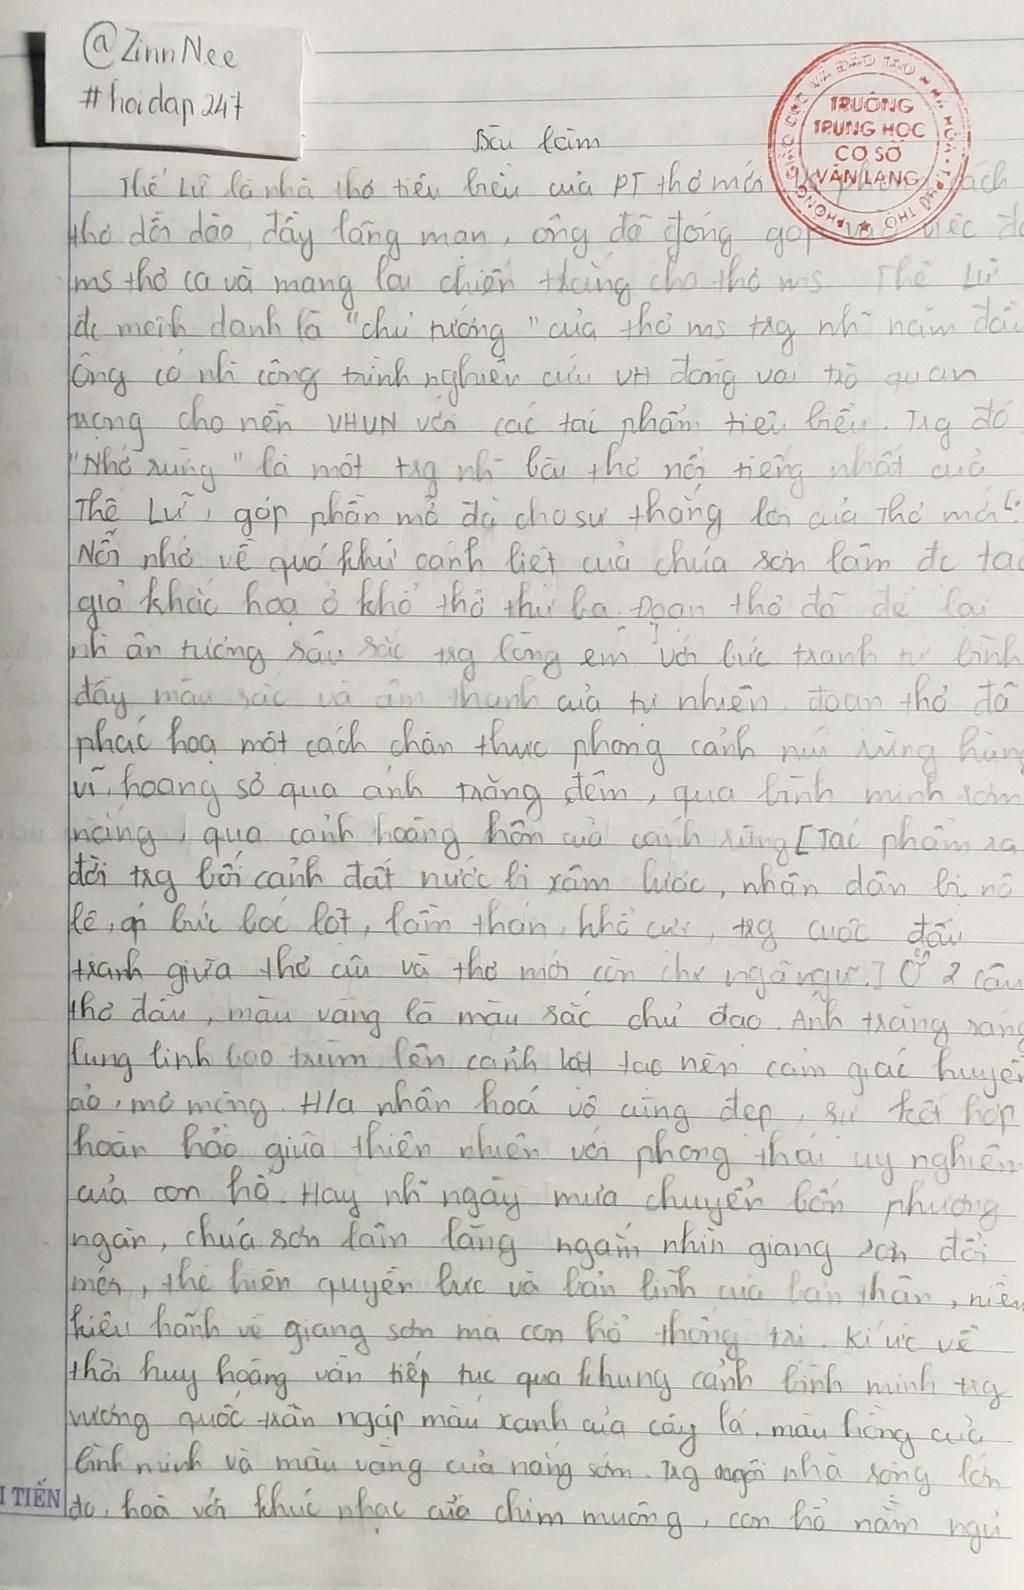 @ZinnNee
#hoidap247
PHÒNG GIÁO DỤC VÀ ĐÀO TẠO
T.PHÚ THỌ
TRƯỜNG
TRUNG HỌC
CƠ SỞ
VĂN LANG
Bài làm
Thế Lữ là nhà thơ tiêu biểu của PT thơ mới
thơ dồi dào, đầy lãng mạn, ông đã đóng góp việc
ms thơ ca và mang lại chiến thắng cho thơ ms. Thế Lữ
đc mệnh danh là "chủ tướng" của thơ ms trg nh~ năm đầu
Ông có nh công trình nghiên cứu VH đóng vai trò quan
trọng cho nền VHVN với các tác phẩm tiêu biểu. Trg đó
"Nhớ rừng" là một trg nh~ bài thơ nổi tiếng nhất của
Thế Lữ, góp phần mở đg cho sự thắng lợi của Thơ mới.
Nỗi nhớ về quá khứ oanh liệt của chúa sơn lâm đc tác
giả khắc hoạ ở khổ thơ thứ ba. Đoạn thơ đã để lại
nh ấn tượng sâu sắc trg lòng em. Với bức tranh tứ bình
đầy màu sắc và âm thanh của tự nhiên, đoạn thơ đã
phác hoạ một cách chân thực phong cảnh núi rừng hùng
vĩ, hoang sơ qua ánh trăng đêm, qua bình minh sớm
nắng, qua cảnh hoàng hôn của cánh rừng [Tác phẩm ra
đời trg bối cảnh đất nước bị xâm lược, nhân dân bị nô
lệ, áp bức bóc lột, lầm than, khổ cực, trg cuộc đấu
tranh giữa thơ cũ và thơ mới còn chx ngã ngũ.] Ở 2 câu
thơ đầu, màu vàng là màu sắc chủ đạo. Ánh trăng sáng
lung linh bao trùm lên cảnh vật tạo nên cảm giác huyền
ảo, mơ mộng. H/a nhân hoá vô cùng đẹp, sự kết hợp
hoàn hảo giữa thiên nhiên với phong thái uy nghiêm
của con hổ. Hay nh~ ngày mưa chuyển bốn phương
ngàn, chúa sơn lâm lặng ngắm nhìn giang sơn đổi
mới, thể hiện quyền lực và bản lĩnh của bản thân, niềm
kiêu hãnh về giang sơn mà con hổ thống trị. Kí ức về
thời huy hoàng vẫn tiếp tục qua khung cảnh bình minh trg
vương quốc tràn ngập màu xanh của cây lá, màu hồng của
bình minh và màu vàng của nắng sớm. Trg ngôi nhà rộng lớn
đó, hoà với khúc nhạc của chim muông, con hổ nằm ngủ
I TIẾN